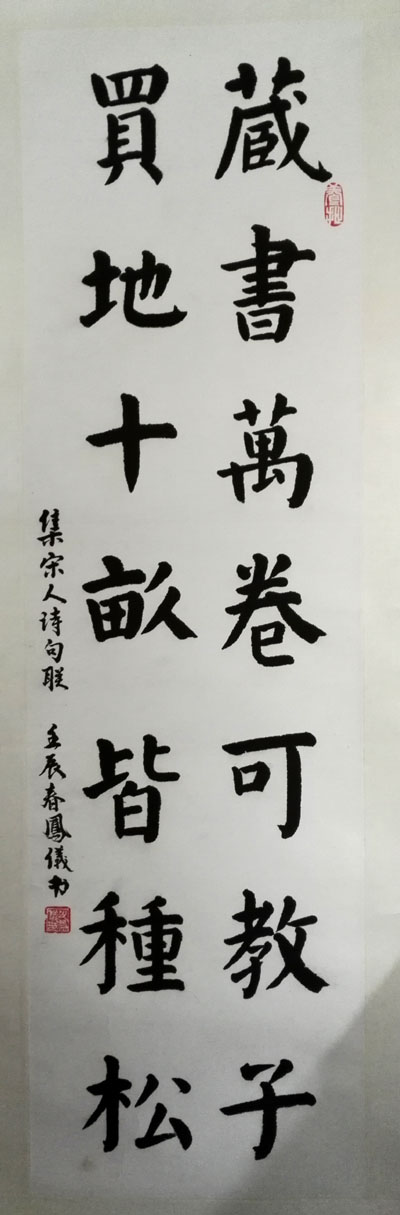 蔵書萬卷可教子
買地十畝皆種松
集宋人诗句联 壬辰春鳳儀书